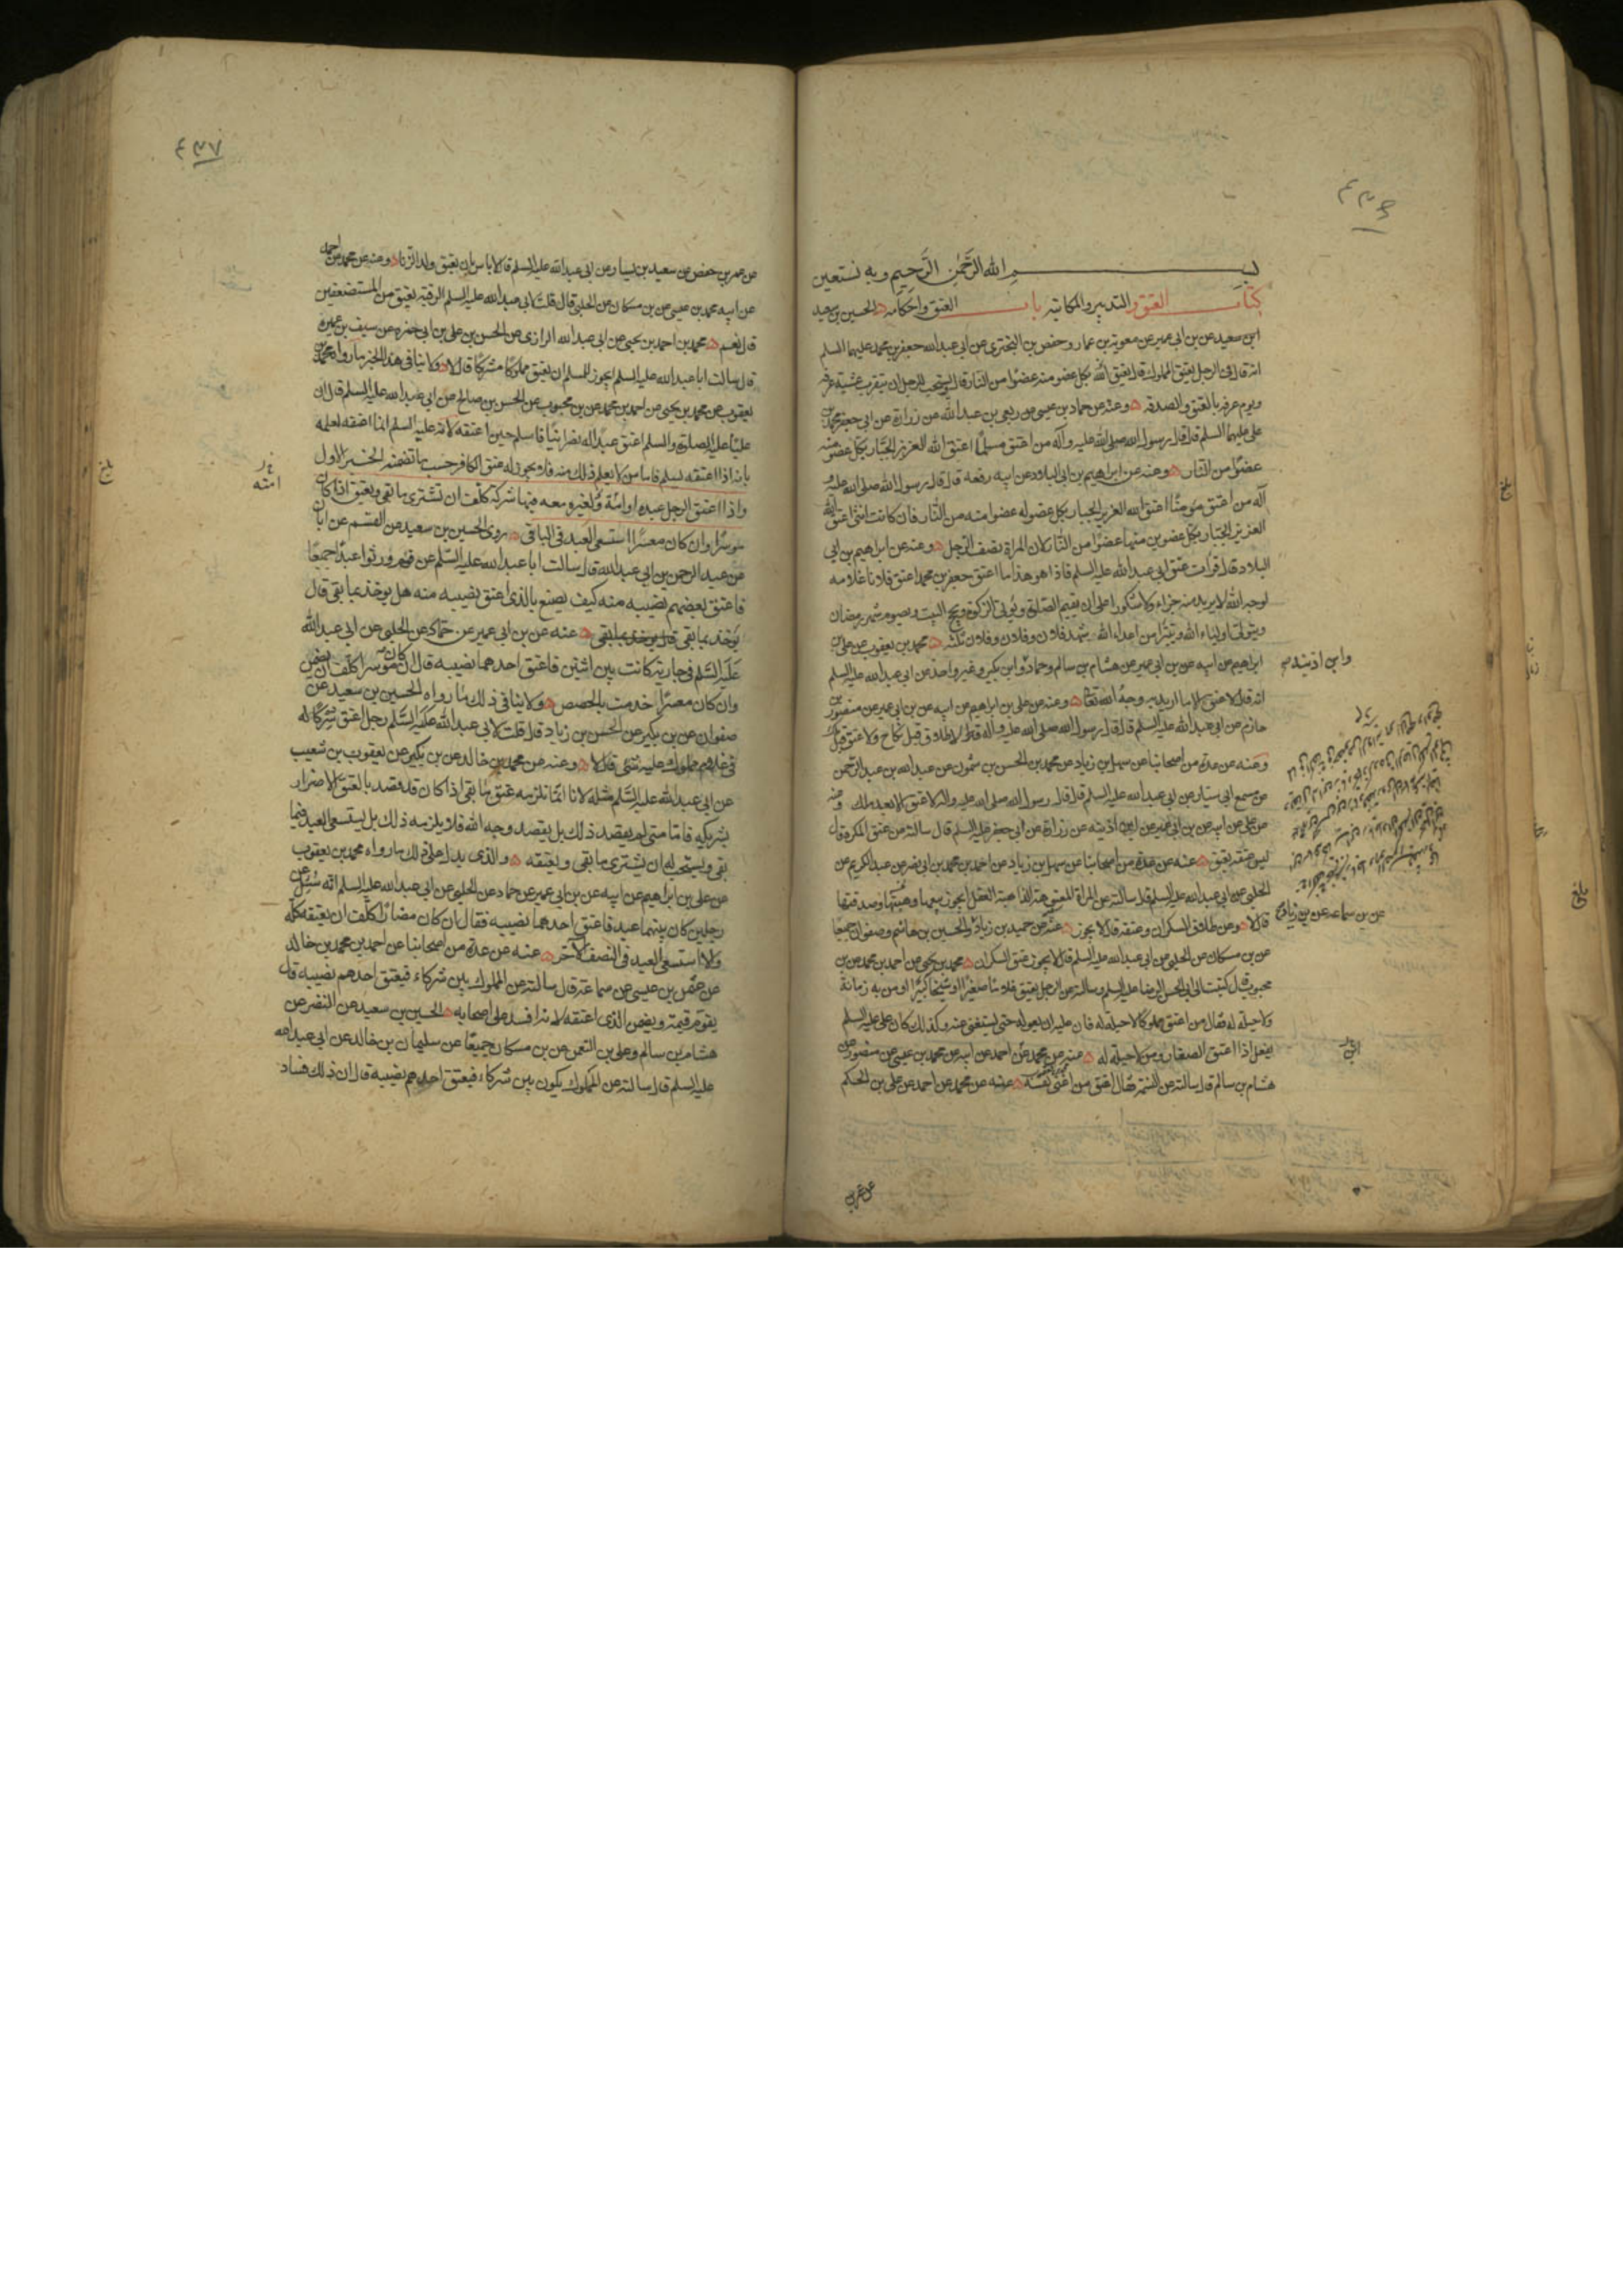 ٤٣٦
بسم الله الرحمن الرحيم وبه نستعين
كتاب العتق والتدبير والمكاتبة باب العتق واحكامه الحسين بن سعيد
ابن سعيد عن بن ابي عمير عن معوية بن عمار وحفص بن البختري عن ابي عبد الله جعفر بن محمد عليهما السلم
انه قال في الرجل يعتق المملوك قال يعتق الله بكل عضو منه عضوا من النار قال ويستحب للرجل ان يتقرب عشية عرفه
ويوم عرفه بالعتق والصدقه وعنه عن حماد بن عيسى عن ربعي بن عبد الله عن زرارة عن ابي جعفر محمد بن
علي عليهما السلم قال قال رسول الله صلى الله عليه وآله من اعتق مسلما اعتق الله العزيز الجبار بكل عضو منه
عضوا من النار وعنه عن ابراهيم بن ابي البلاد عن ابيه رفعه قال قال رسول الله صلى الله عليه
آله من اعتق مؤمنا اعتق الله العزيز الجبار بكل عضو له عضوا منه من النار فان كانت انثى اعتق الله
العزيز الجبار بكل عضوين منها عضوا من النار لان المراة نصف الرجل وعنه عن ابراهيم بن ابي
البلاد قال قرات عتق ابي عبد الله عليه السلم فاذا هو هذا ما اعتق جعفر بن محمد اعتق فلانا غلامه
لوجه الله لا يريد منه جزاء ولا شكورا على ان يقيم الصلوة ويؤتي الزكوة ويحج البيت ويصوم شهر رمضان
ويتولى اولياء الله ويتبرا من اعداء الله شهد فلان وفلان وفلان ثلثه محمد بن يعقوب عن علي بن
ابراهيم عن ابيه عن بن ابي عمير عن هشام بن سالم وحماد وابن بكير وغير واحد عن ابي عبد الله عليه السلم
وابن اذينه
انه قال لا عتق الا ما اريد به وجه الله تعالى وعنه عن علي بن ابراهيم عن ابيه عن بن ابي عمير عن منصور بن
حازم عن ابي عبد الله عليه السلم قال قال رسول الله صلى الله عليه وآله لا طلاق قبل نكاح ولا عتق قبل ملك
وعنه عن عدة من اصحابنا عن سهل بن زياد عن محمد بن الحسن بن شمون عن عبد الله بن عبد الرحمن
عن مسمع ابي سيار عن ابي عبد الله عليه السلم قال قال رسول الله صلى الله عليه وآله لا عتق الا بعد ملك وعنه
عن علي عن ابيه عن بن ابي عمير عن ابن اذينه عن زرارة عن ابي جعفر عليه السلم قال سالته عن عتق المكره قال
ليس عتقه بعتق عنه عن عدة من اصحابنا عن سهل بن زياد عن احمد بن محمد بن ابي نصر عن عبد الكريم عن
الحلبي عن ابي عبد الله عليه السلم قال سالته عن المراة المعتوهة الذاهبة العقل ايجوز بيعها وهبتها وصدقتها
قال لا وعن طلاق السكران وعتقه قال لا يجوز عنه عن حميد بن زياد والحسين بن هاشم وصفوان جميعا
عن بن سماعه عن بن زياد
عن بن مسكان عن الحلبي عن ابي عبد الله عليه السلم قال لا يجوز عتق السكران محمد بن يحيى عن احمد بن محمد عن بن
محبوب قال كتبت الى ابي الحسن الرضا عليه السلم وسالته عن الرجل يعتق غلاما صغيرا او شيخا كبيرا او من به زمانة
ولا حيلة له فقال من اعتق مملوكا لا حيلة له فان عليه ان يعوله حتى يستغني عنه وكذلك كان علي عليه السلم
يفعل اذا اعتق الصغار ومن لا حيلة له عنه عن محمد عن احمد عن ابيه عن محمد بن عيسى عن منصور عن
هشام بن سالم قال سالته عن النسمة فقال اعتق من اغنى نفسه عنه عن محمد عن احمد عن علي بن الحكم
عن عمر بن
٤٣٧
عن عمر بن حفص عن سعيد بن يسار عن ابي عبد الله عليه السلم قال لا باس بان يعتق ولد الزنا وعنه عن محمد بن احمد
عن ابيه محمد بن عيسى عن بن مسكان عن الحلبي قال قلت لابي عبد الله عليه السلم الرقبة تعتق من المستضعفين
قال نعم محمد بن احمد بن يحيى عن ابي عبد الله الرازي عن الحسن بن علي بن ابي حمزه عن سيف بن عميرة
قال سالت ابا عبد الله عليه السلم ايجوز للمسلم ان يعتق مملوكا مشركا قال لا ولا ينافي هذا الخبر ما رواه محمد بن
يعقوب عن محمد بن يحيى عن احمد بن محمد عن بن محبوب عن الحسن بن صالح عن ابي عبد الله عليه السلم قال ان
عليا عليه الصلوة والسلم اعتق عبدا له نصرانيا فاسلم حين اعتقه لانه عليه السلم انما اعتقه لعلمه
بانه اذا اعتقه يسلم فاما من لا يعلم ذلك منه فلا يجوز له عتق الكافر حسب ما تضمنه الخبر الاول
واذا اعتق الرجل عبده او امة ولغيره معه فيها شركة كلف ان تشترى ما بقي ويعتق اذا كان
امته
موسرا وان كان معسرا استسعى العبد في الباقي روى الحسين بن سعيد عن القسم عن ابان
عن عبد الرحمن بن ابي عبد الله قال سالت ابا عبد الله عليه السلم عن قوم ورثوا عبدا جميعا
فاعتق بعضهم نصيبه منه كيف يصنع بالذي اعتق نصيبه منه هل يوخذ بما بقي قال
يوخذ بما بقي عنه عن بن ابي عمير عن حماد عن الحلبي عن ابي عبد الله
عليه السلم في جارية كانت بين اثنين فاعتق احدهما نصيبه قال ان كان موسرا كلف ان يضمن
وان كان معسرا خدمت بالحصص ولا ينافي ذلك ما رواه الحسين بن سعيد عن
صفوان عن بن بكير عن الحسن بن زياد قال قلت لابي عبد الله عليه السلم رجل اعتق شركا له
في غلام مملوك عليه شئ قال لا وعنه عن محمد بن خالد عن بن بكير عن يعقوب بن شعيب
عن ابي عبد الله عليه السلم مثله لانا انما نلزمه عتق ما بقي اذا كان قد قصد بالعتق الاضرار
بشريكه فاما متى لم يقصد ذلك بل يقصد وجه الله فلا يلزمه ذلك بل يستسعى العبد فيما
بقي ويستحب له ان يشتري ما بقي ويعتقه والذي يدل على ذلك ما رواه محمد بن يعقوب
عن علي بن ابراهيم عن ابيه عن بن ابي عمير عن حماد عن الحلبي عن ابي عبد الله عليه السلم انه سئل عن
رجلين كان بينهما عبد فاعتق احدهما نصيبه فقال ان كان مضارا كلف ان يعتقه كله
والا استسعى العبد في النصف الآخر عنه عن عدة من اصحابنا عن احمد بن محمد بن خالد
عن عثمن بن عيسى عن سماعة قال سالته عن المملوك بين شركاء فيعتق احدهم نصيبه قال
يقوم قيمة ويضمن الذي اعتقه لانه افسد على اصحابه الحسين بن سعيد عن النضر عن
هشام بن سالم وعلي بن النعمن عن بن مسكان جميعا عن سليمان بن خالد عن ابي عبد الله
عليه السلم قال سالته عن المملوك يكون بين شركاء فيعتق احدهم نصيبه قال ان ذلك فساد